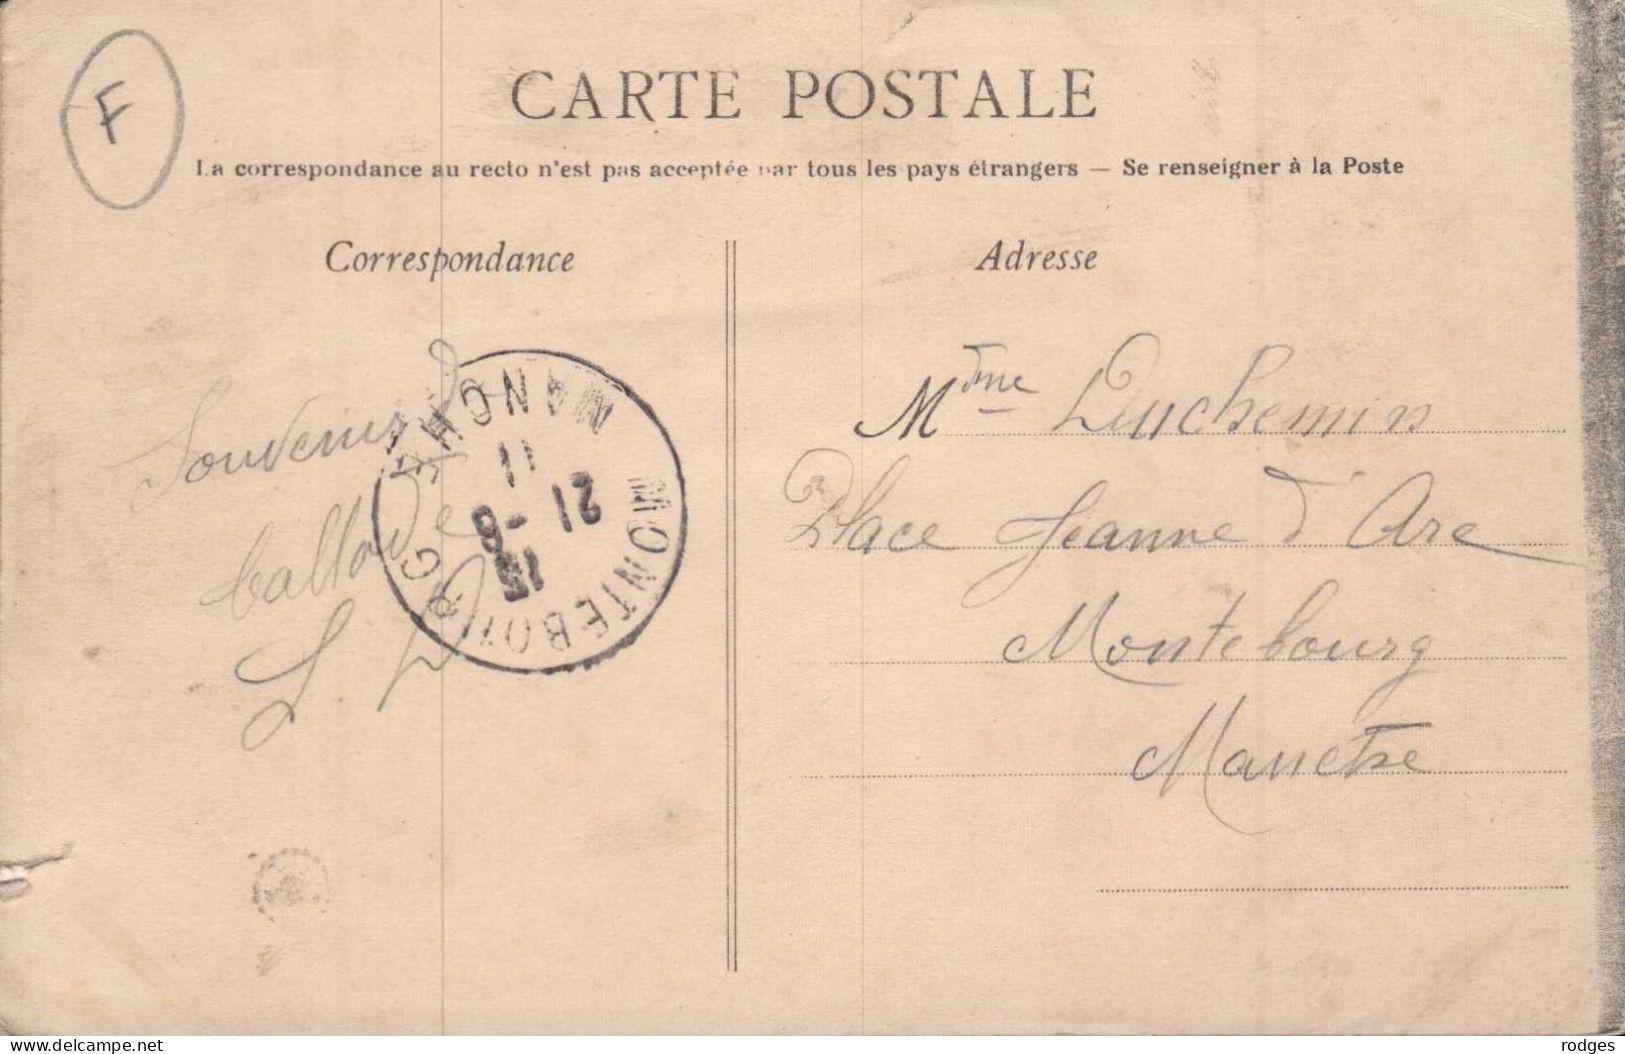 F
CARTE POSTALE
La correspondance au recto n'est pas acceptée par tous les pays étrangers — Se renseigner à la Poste
Correspondance
Adresse
Souvenirs
L. D
MONTEBOURG MANCHE
11
21 -6
15
Mme Duchemin
Place Jeanne d'Arc
Montebourg
Manche
rodges